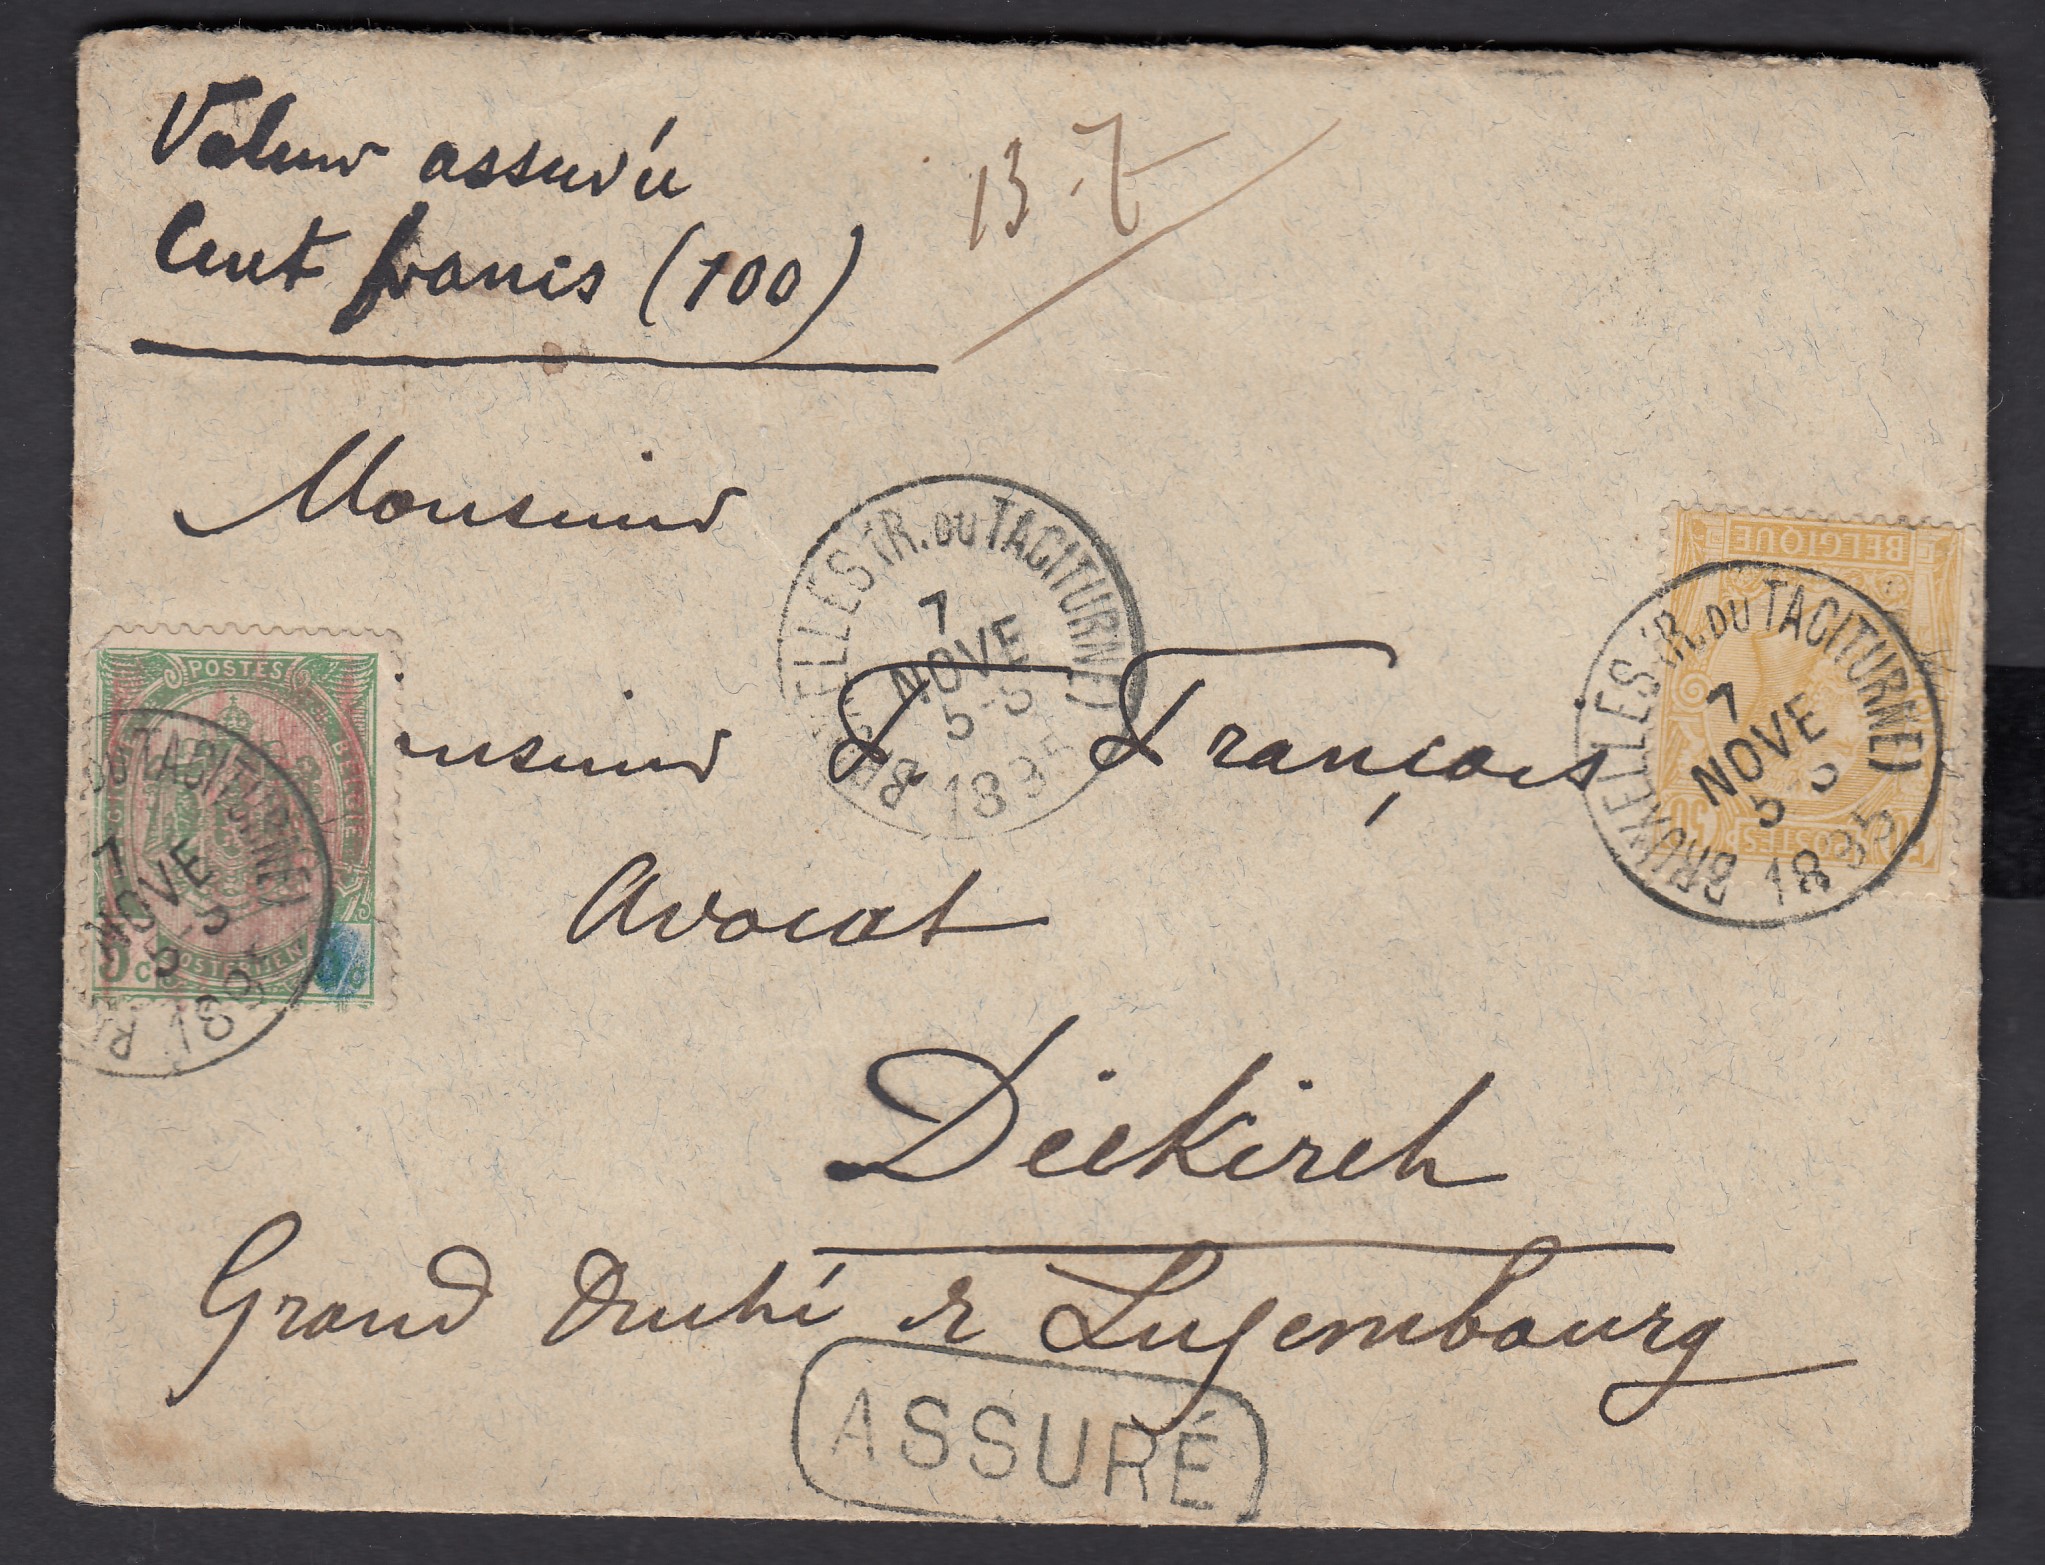 Valeur assurée
Cent francs (100)
13
Monsieur
BRUXELLES (R. DU TACITURNE)
7
NOVE
5-S
1895
Monsieur F. François
Avocat
Diekirch
Grand Duché de Luxembourg
ASSURÉ
BELGIQUE
POSTES
BRUXELLES (R. DU TACITURNE)
7
NOVE
5-S
1895
POSTES
BELGIE
5 C
POSTERIJEN
DU TACITURNE)
7
NOVE
5-S
189